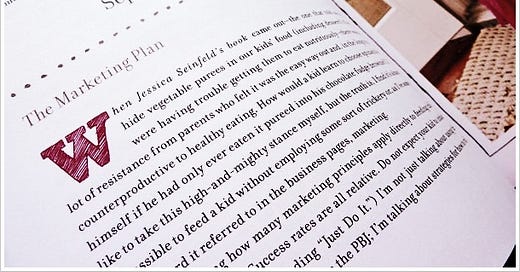 Sep
The Marketing Plan
When Jessica Seinfeld's book came out—the one that
hide vegetable purees in our kids' food (including
were having trouble getting them to eat nutritiously—there
lot of resistance from parents who felt it was the easy way out and, in the
counterproductive to healthy eating. How would a kid learn to choose
himself if he had only ever eaten it pureed into his chocolate fudge
like to take this high-and-mighty stance myself, but the truth is, I find it
ssible to feed a kid without employing some sort of trickery or, as I've
rd it referred to in the business pages, marketing.
ng how many marketing principles apply directly to
Success rates are all relative. Do not expect your kid
ding "Just Do It.") I'm not just talking about
the PBJ; I'm talking about strategies